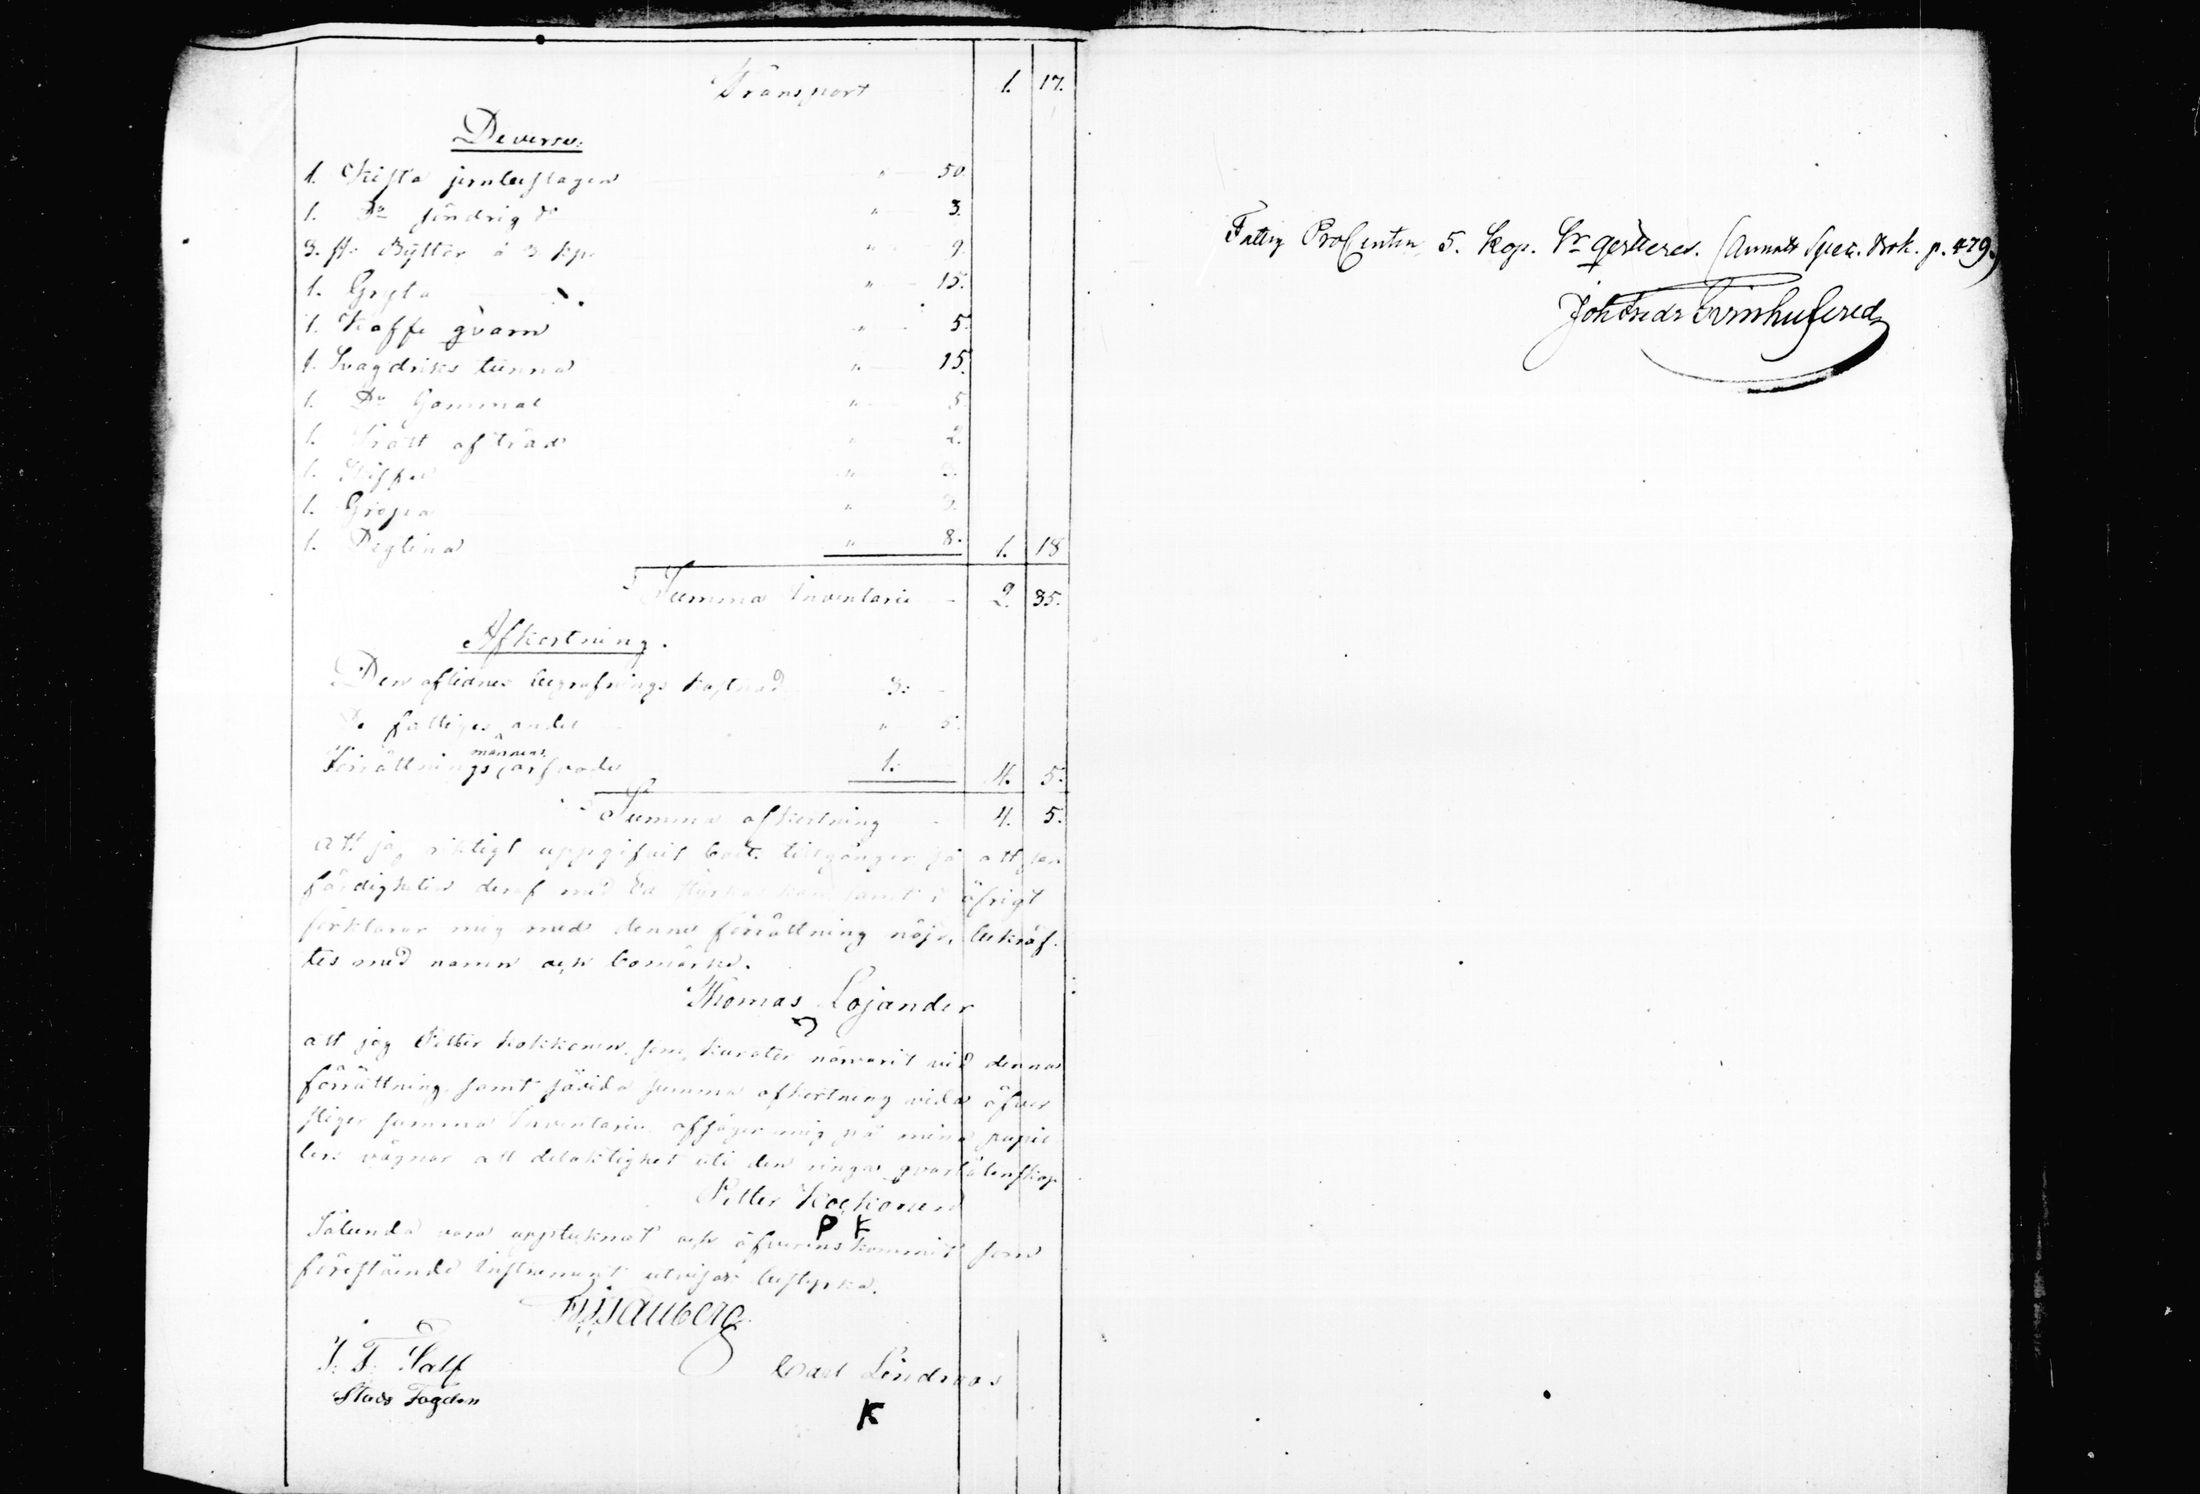 Transport 1. 17.
Deverse:
1. Kista jernbeslagen " 50.
1. Do söndrig do " 3.
3. st. Byttor à 3 kp. " 9.
1. Gryta " 15.
1. Kaffe qvarn " 5.
1. Svagdriks tunna " 15.
1. Do Gammal " 5.
1. Tratt af träd " 2.
1. " 3.
1. " 3.
1. Degtina " 8. 1. 18
Summa Inventarii 2. 35.
Afkortning.
Den aflidnes begrafnings kostnad 3: -
De fattiges andel " 5.
Förrättnings männens arfvode 1: - 4. 5.
Summa afkortning 4. 5.
Att jag riktigt uppgifvit boets tillgångar så att san
färdigheten deraf med Ed styrkas kan samt i öfrigt
förklarar mig med denna förrättning nöjd, bekräf-
tes med namn och bomärke.
Thomas Lojander
att jag Petter Kokkonen, som kurator närvarit vid denna
förrättning samt såvida summa afkortning vida öfver
stiger summa Inventarii afsäger mig på mina pupil
lers vägnar all delaktighet uti den ringa qvarlåtenskap
Petter Kockonen
P K
Sålunda vara upptecknat och öfverenskommit som
föreståënde Instrument utvisar besyrka.
J. F. Falk
Stads Fogden
Carl Lindroos
K
Fattig ProCenten 5. kop. Sr qvitteras. (Annodt Spec. Bok. p. 479.)
Joh Fredr Svinhufvud